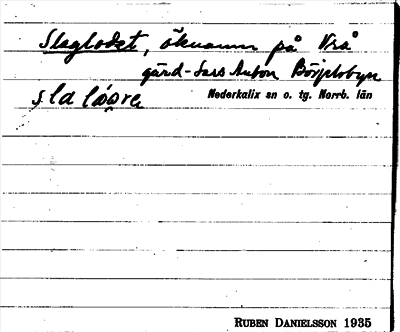 Slaglodet, öknamn på Vrå
gård-Lars Anton Börjelsbyn
Nederkalix sn o. tg. Norrb. län
RUBEN DANIELSSON 1935